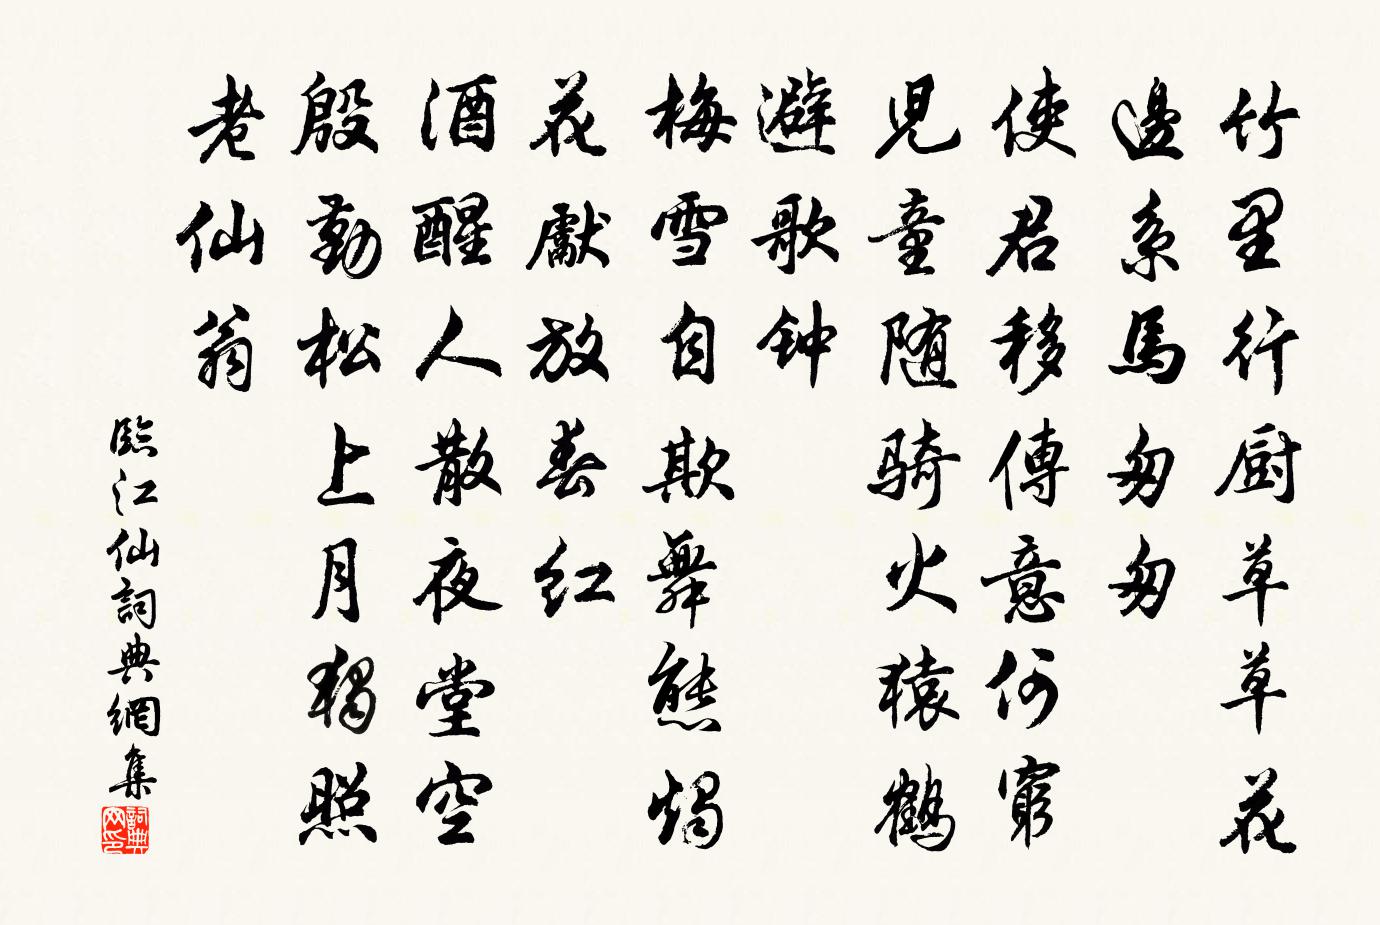 竹里行厨草草花
邊系馬匆匆
使君移傳意何窮
児童随騎火猿鶴
避歌钟
梅雪自欺舞態燭
花獻放春红
酒醒人散夜堂空
殷勤松上月獨照
老仙翁
臨江仙詞典網集
詞典网印